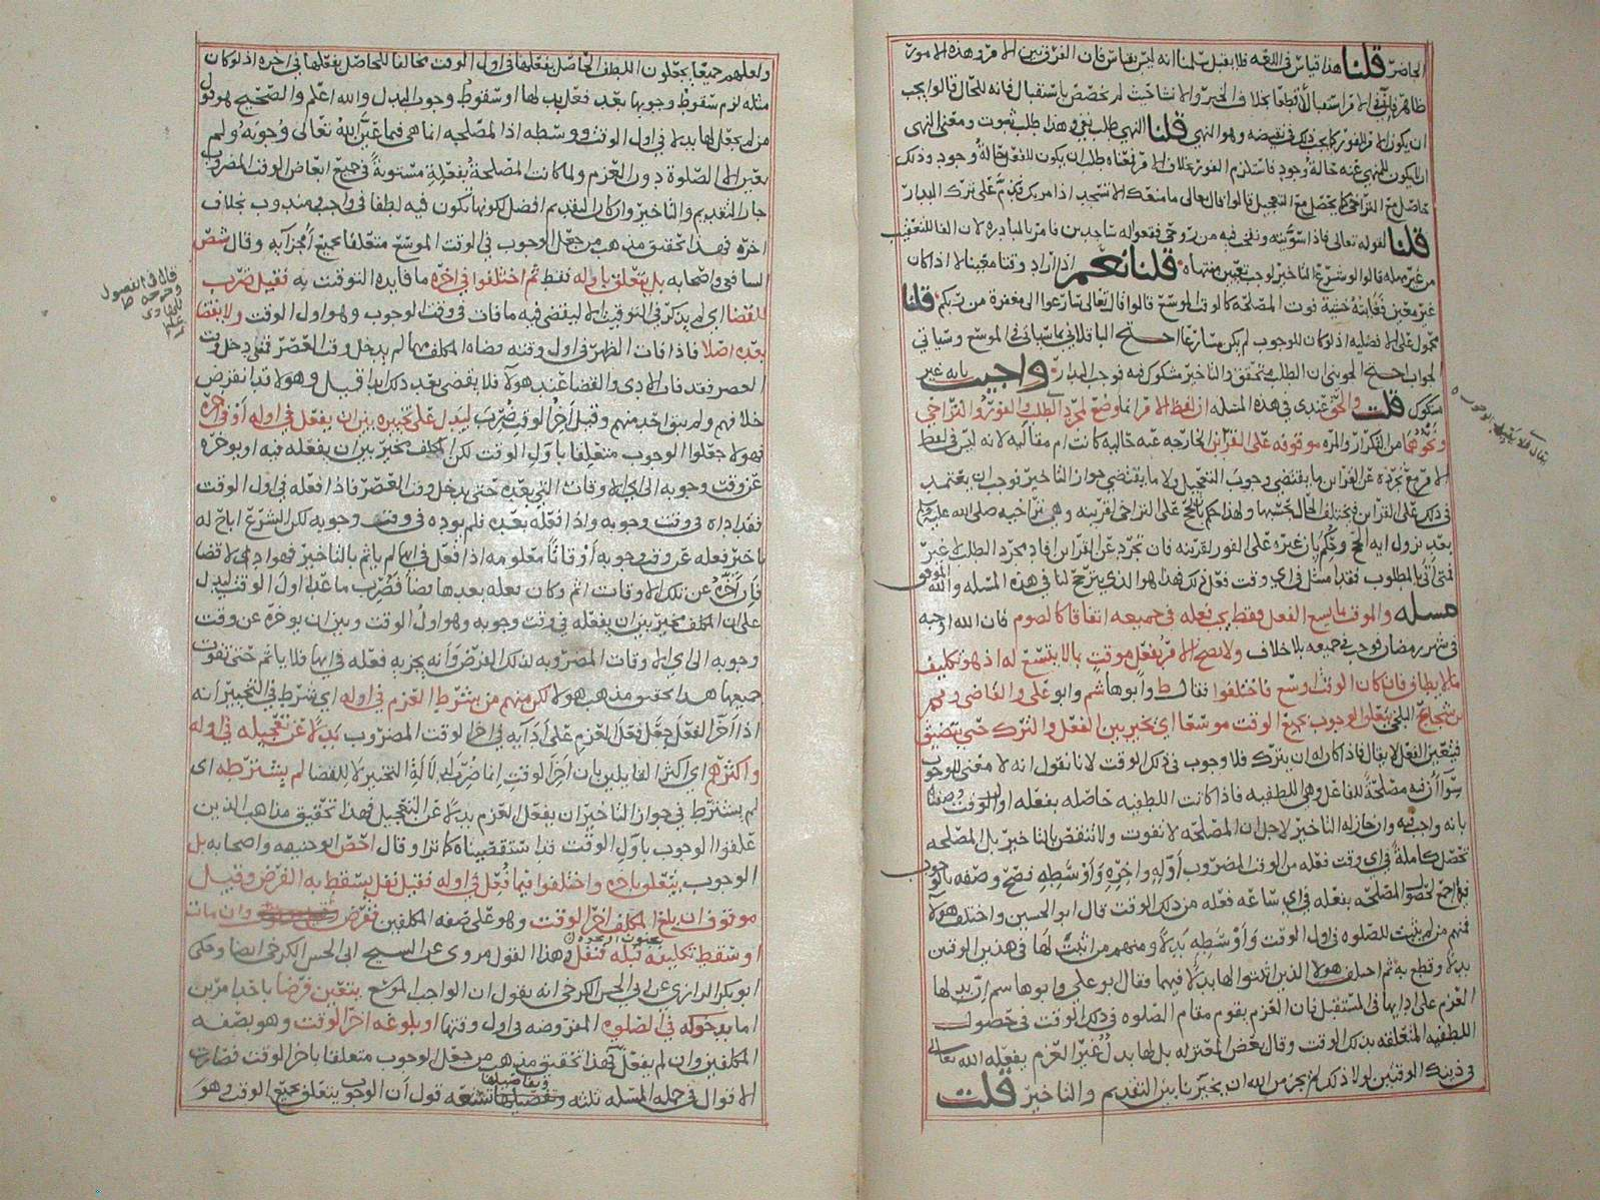 الحاضر قلنا هذا قياس في اللغة فلا يقبل سلمنا انه ليس بقياس فان الفرق بين الامر وهذه الامور
ظاهر فان في الامر استقبالا قطعا بخلاف الخبر والانشا حيث لم تخصص باستقبال فانه للحال قالوا يجب
ان يكون الامر للفور كما يجب ذلك في نقيضه وهو النهي قلنا النهي طلب نفي وهذا طلب ثبوت ومعنى النهي
ان لا يكون للمنهي عنه حالة وجود فاستلزم الفور بخلاف الامر فمعناه طلب ان يكون للفعل حالة وجود وذلك
حاصل مع التراخي كما يحصل مع التعجيل قالوا قال تعالى ما منعك الا تسجد اذ امرتك فذم على ترك البدار
قلنا لقوله تعالى فاذا سويته ونفخت فيه من روحي فقعوا له ساجدين فامر بالمبادرة لان الفا للتعقيب
من غير مهلة قالوا لو شرع التاخير لوجب تعيين منتهاه قلنا نعم اذا اراد وقتا معينا لا اذا كان
غير معين فغايته خشية فوت المصلحة كالوقت الموسع قالوا قال تعالى سارعوا الى مغفرة من ربكم قلنا
محمول على الافضلية اذ لو كان للوجوب لم يكن مسارعا احتج الباقلاني بما سياتي في الموسع وسياتي
الجواب احتج الجويني ان الطلب متحقق والتاخير مشكوك فيه فوجب البدار واجيب بانه غير
مشكوك قلت والحق عندي في هذه المسئلة ان لفظ الامر انما وضع لمجرد الطلب والفور والتراخي
ونحوهما من التكرار والمرة موقوفة على القراين الخارجة عنه حالية كانت ام مقالية لانه ليس في لفظ
الامر مع تجرده عن القراين ما يقتضي وجوب التعجيل ولا ما يقتضي جواز التاخير فوجب ان يعتمد
في ذلك على القراين فيختلف الحال بحسبها ولهذا حكم بالحج على التراخي لقرينة وهي تراخيه صلى الله عليه
بعد نزول اية الحج وحكم بان غيره على الفور لقرينة فان تجرد عن القراين افاد مجرد الطلب لا غير
فمتى اتى بالمطلوب فقد امتثل في اي وقت فعل ذلك هذا هو الذي يترجح لنا في هذه المسئلة والله الموفق
مسئلة والوقت ما يسع الفعل فقط يجب فعله في جميعه اتفاقا كالصوم فان الله اوجبه
في شهر رمضان فوجب في جميعه بلا خلاف ولا يصح الامر بفعل موقت بما لا يتسع له اذ هو تكليف
ما لا يطاق فان كان الوقت اوسع فاختلفوا فقال ط وابو هاشم وابو علي والقاضي ومحمد
بن شجاع البلخي يتعلق الوجوب بجميع الوقت موسعا اي يخير بين الفعل والترك حتى يتضيق
فيتعين الفعل لا يقال فاذا كان له ان يتركه فلا وجوب في ذلك الوقت لانا نقول انه لا معنى للوجوب
سوا ان فيه مصلحة للفاعل وهي اللطفية فاذا كانت اللطفية حاصلة بفعله اول الوقت وصفناه
بانه واجب فيه وان جاز له التاخير لاجل ان المصلحة لا تفوت ولا تنتقص بالتاخير بل المصلحة
تحصل كاملة في اي وقت فعله من الوقت المضروب اوله واخره واوسطه فصح وصفه بالوجوب
فيها اجمع لحصول المصلحة بفعله في اي ساعة فعله من ذلك الوقت قال ابو الحسين واختلف هولا
فمنهم من لم يثبت للصلوة في اول الوقت واوسطه بدلا ومنهم من اثبت لها في هذين الوقتين
بدلا وقطع به ثم اختلف هولا الذين اثبتوا لها بدلا فيهما فقال ابو علي وابو هاشم ان بدلها
العزم على ادايها في المستقبل فان العزم يقوم مقام الصلوة في ذلك الوقت في حصول
اللطفية المتعلقة بذلك الوقت وقال بعض المعتزلة بل لها بدل غير العزم يفعله الله تعالى
في ذينك الوقتين لولا ذلك لم يجز من الله ان يخيرنا بين التقديم والتاخير قلت
ولعلهم جميعا يجعلون اللطف الحاصل بفعلها في اول الوقت مخالفا للحاصل بفعلها في اخره اذ لو كان
مثله لزم سقوط وجوبها بعد فعل بدلها او سقوط وجوب البدل والله اعلم والصحيح هو قول
من لم يجعل لها بدلا في اول الوقت ووسطه اذ المصلحة انما هي فيما عين الله تعالى وجوبه ولم
يعين الا الصلوة دون العزم ولما كانت المصلحة بفعله مستوية في جميع ابعاض الوقت المضروب
جاز التقديم والتاخير وان كان التقديم افضل لكونها تكون فيه لطفا في واجب ومندوب بخلاف
اخره فهذا تحقيق مذهب من جعل الوجوب في الوقت الموسع متعلقا بجميع اجزايه وقال شص
الشافعي واصحابه بل يتعلق باوله فقط ثم اختلفوا في اخره ما فايدة التوقيت به فقيل ضرب
للقضا اي لم يذكر في التوقيت الا ليقضى فيه ما فات في وقت الوجوب وهو اول الوقت ولا يقضا
بعده اصلا فاذا فات الظهر في اول وقته قضاه المكلف ما لم يدخل وقت العصر فمتى دخل وقت
العصر فقد فات الادى والقضا عند هولا فلا يقضى بعد ذلك ابدا قيل وهولا قد انقرض
خلافهم ولم يبق احد منهم وقيل اخر الوقت ضرب ليدل على تخييره بين ان يفعل في اوله او في اخره
فهولا جعلوا الوجوب متعلقا باول الوقت لكن المكلف مخير بين ان يفعله فيه او يوخره
عن وقت وجوبه الى اي الاوقات التي بعده حتى يدخل وقت العصر فاذا فعله في اول الوقت
فقد اداه في وقت وجوبه واذا فعله بعده فلم يوده في وقت وجوبه لكن الشرع اباح له
تاخير فعله عن وقت وجوبه اوقاتا معلومة اذا فعل في ايها لم ياثم بالتاخير فهو ادى لا قضا
فان اخره عن تلك الاوقات اثم وكان فعله بعدها قضا فضرب ما عدا اول الوقت ليدل
على ان المكلف مخير بين ان يفعله في وقت وجوبه وهو اول الوقت وبين ان يوخره عن وقت
وجوبه الى اي الاوقات المضروبة لذلك الغرض وانه يجزيه فعله في ايها فلا ياثم حتى تفوت
جميعها هذا تحقيق مذهب هولا لكن منهم من يشترط العزم في اوله اي يشترط في التخيير انه
اذا اخر الفعل جعل فعل العزم على ادايه في اخر الوقت المضروب بدلا عن تعجيله في اوله
واكثرهم اي اكثر القايلين بان اخر الوقت انما ضرب لدلالة التخيير لا للقضا لم يشترطه اي
لم يشترط في جواز التاخير ان يفعل العزم بدلا عن التعجيل فهذا تحقيق مذاهب الذين
علقوا الوجوب باول الوقت قد استقصيناه كما ترا وقال اخص ابو حنيفة واصحابه بل
الوجوب يتعلق باخره واختلفوا فيما فعل في اوله فقيل نفل يسقط به الفرض وقيل
موقوف ان بلغ المكلف اخر الوقت وهو على صفة المكلفين ففرض وان مات
او سقط تكليفه قبله بجنون او نحوه فنفل وهذا القول مروي عن الشيخ ابي الحسن الكرخي ايضا وحكى
ابو بكر الرازي عن ابي الحسن الكرخي انه يقول ان الواجب الموسع يتعين فرضا باحد امرين
اما بدخوله في الصلوة المفروضة في اول وقتها او بلوغه اخر الوقت وهو بصفة
المكلفين وان لم يفعل فهذا تحقيق مذهب من جعل الوجوب متعلقا باخر الوقت فصارت
الاقوال في جملة المسئلة ثلثة وفي تفاصيلها تسعة قول ان الوجوب يتعلق بجميع الوقت وهو
قال في الفصول